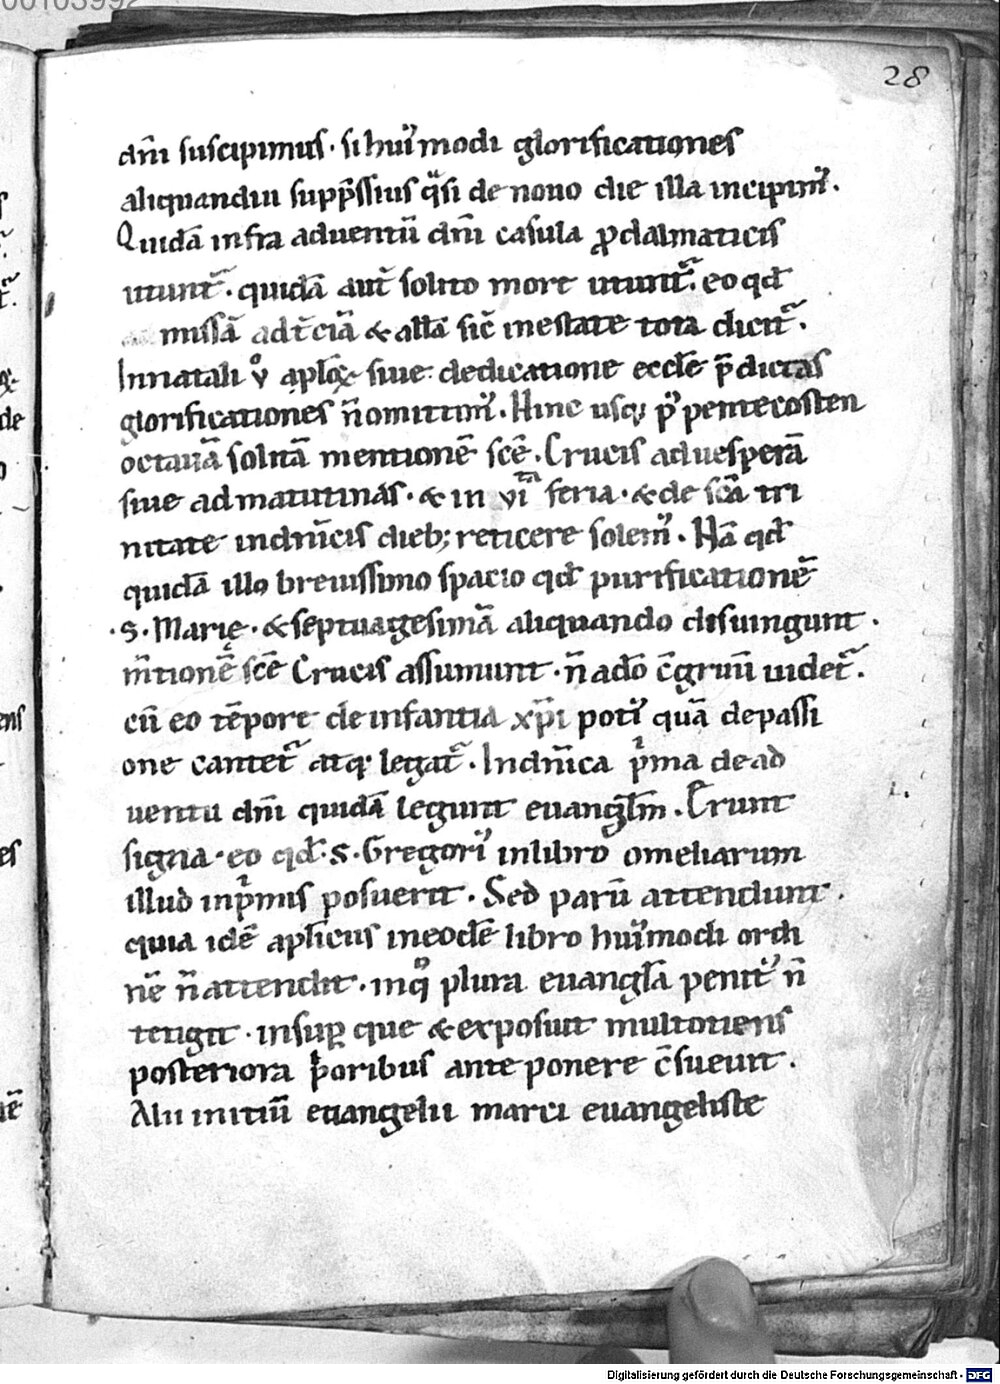 00103992
28
dn̄i suscipimus · si hui᷒modi glorificationes
aliquandiu supp̄ssius q̈si de nouo die illa incipim᷒.
Quidā infra aduentū dn̄i casula ꝓ dalmaticis
utunt᷑. quidā aut̄ solito more utunt᷑. eo qd̄
missā ad t̄ciā & allā sic̄ in estate tota dicit᷑.
In natali ṽ aplo᷑ꝝ siue dedicatione eccłe p̄dictas
glorificationes n̄ omittim᷒. Hinc usq; p᷒ pentecosten
octauā solitā mentionē scē. Crucis ad uesperā
siue ad matutinas · & in vi ͭᵃ feria · & de scā tri
nitate in dn̄icis dieb; reticere solem᷒. Nā qd̄
quidā illo breuissimo spacio qd̄ purificationē
· S · Marię · & septuagesimā aliquando disiungunt.
m̄tionē scē Crucis assumunt · n̄ adō c̄gruū uidet᷑.
cū eo tēpore de infantia xp̄i poti᷒ quā de passi
one cantet᷑ atq; legat᷑. In dn̄ica p̓ma de ad
uentu dn̄i quidā legunt euanglm̄. Erunt
signa · eo qd̄ · S · Gregori᷒ in libro omeliarum
illud inp̓mis posuerit. Sed parū attendunt.
quia idē aplicus in eodē libro hui᷒modi ordi
nē n̄ attendit. in quo plura euanglā penit᷒ n̄
tetigit · insuꝑ que & exposuit multotiens
posteriora p̓oribus ante ponere c̄sueuit.
Alii initiū euangelii marci euangeliste
Digitalisierung gefördert durch die Deutsche Forschungsgemeinschaft - DFG